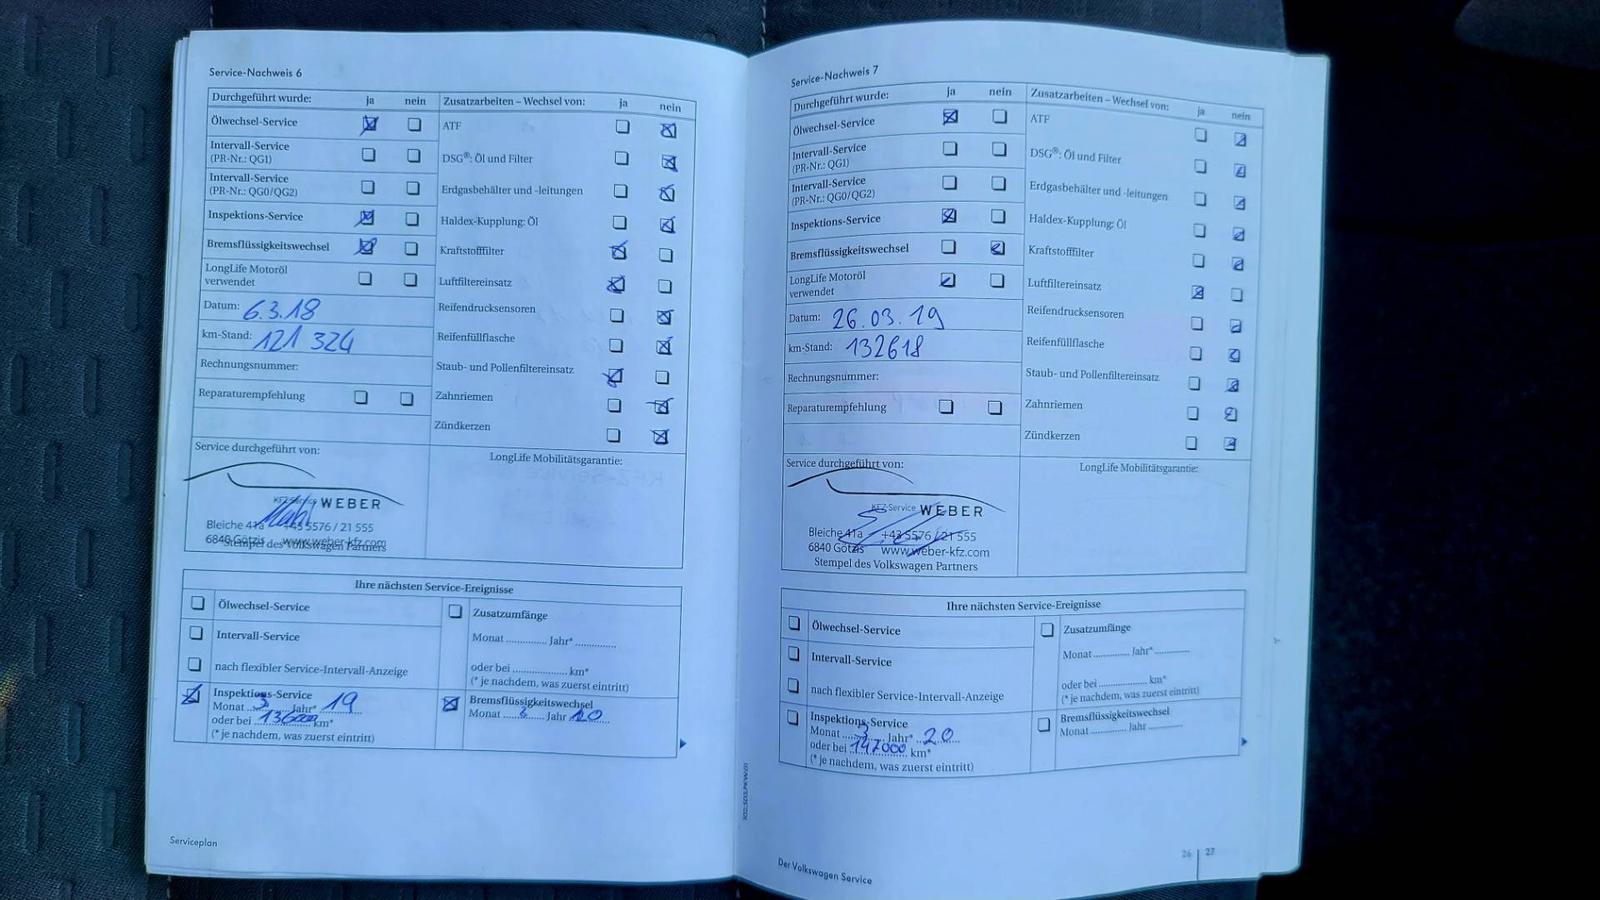 Service-Nachweis 6
Durchgeführt wurde: ja nein
Ölwechsel-Service
Intervall-Service
(PR-Nr.: QG1)
Intervall-Service
(PR-Nr.: QG0/QG2)
Inspektions-Service
Bremsflüssigkeitswechsel
LongLife Motoröl
verwendet
Datum: 6.3.18
km-Stand: 121 324
Rechnungsnummer:
Reparaturempfehlung
Zusatzarbeiten – Wechsel von: ja nein
ATF
DSG®: Öl und Filter
Erdgasbehälter und -leitungen
Haldex-Kupplung: Öl
Kraftstofffilter
Luftfiltereinsatz
Reifendrucksensoren
Reifenfüllflasche
Staub- und Pollenfiltereinsatz
Zahnriemen
Zündkerzen
Service durchgeführt von:
KFZ-Service WEBER
Bleiche 41a +43 5576 / 21 555
6840 Götzis www.weber-kfz.com
Stempel des Volkswagen Partners
LongLife Mobilitätsgarantie:
Ihre nächsten Service-Ereignisse
Ölwechsel-Service
Intervall-Service
nach flexibler Service-Intervall-Anzeige
Inspektions-Service
Monat 3 Jahr* 19
oder bei 136000 km*
(* je nachdem, was zuerst eintritt)
Zusatzumfänge
Monat ............... Jahr* ...............
oder bei .................... km*
(* je nachdem, was zuerst eintritt)
Bremsflüssigkeitswechsel
Monat Jahr 20
Serviceplan
Service-Nachweis 7
Durchgeführt wurde: ja nein
Ölwechsel-Service
Intervall-Service
(PR-Nr.: QG1)
Intervall-Service
(PR-Nr.: QG0/QG2)
Inspektions-Service
Bremsflüssigkeitswechsel
LongLife Motoröl
verwendet
Datum: 26.03.19
km-Stand: 132618
Rechnungsnummer:
Reparaturempfehlung
Zusatzarbeiten – Wechsel von: ja nein
ATF
DSG®: Öl und Filter
Erdgasbehälter und -leitungen
Haldex-Kupplung: Öl
Kraftstofffilter
Luftfiltereinsatz
Reifendrucksensoren
Reifenfüllflasche
Staub- und Pollenfiltereinsatz
Zahnriemen
Zündkerzen
Service durchgeführt von:
KFZ-Service WEBER
Bleiche 41a +43 5576 / 21 555
6840 Götzis www.weber-kfz.com
Stempel des Volkswagen Partners
LongLife Mobilitätsgarantie:
Ihre nächsten Service-Ereignisse
Ölwechsel-Service
Intervall-Service
nach flexibler Service-Intervall-Anzeige
Inspektions-Service
Monat 3 Jahr* 20
oder bei 147000 km*
(* je nachdem, was zuerst eintritt)
Zusatzumfänge
Monat ............. Jahr* .............
oder bei .................... km*
(* je nachdem, was zuerst eintritt)
Bremsflüssigkeitswechsel
Monat ............. Jahr .............
Der Volkswagen Service
26 | 27